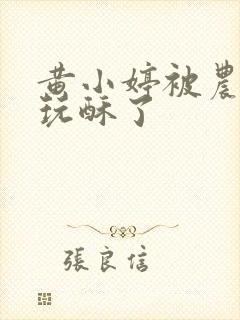 黄小婷被農
玩酥了
張良信